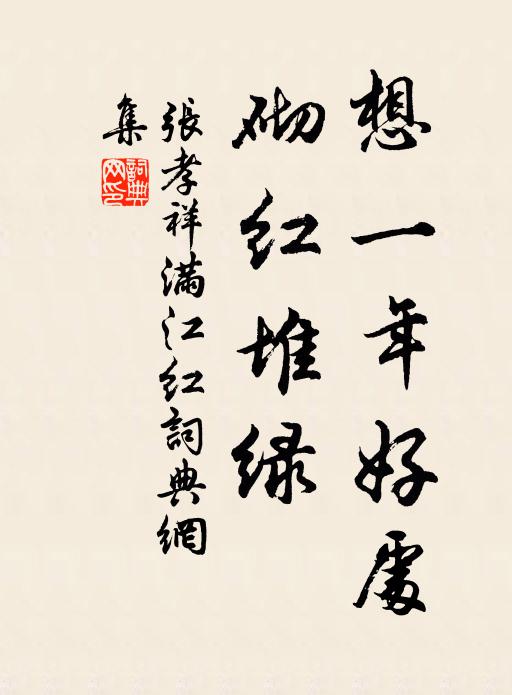 想一年好處
砌红堆绿
張孝祥滿江红詞典網
集
詞典網印